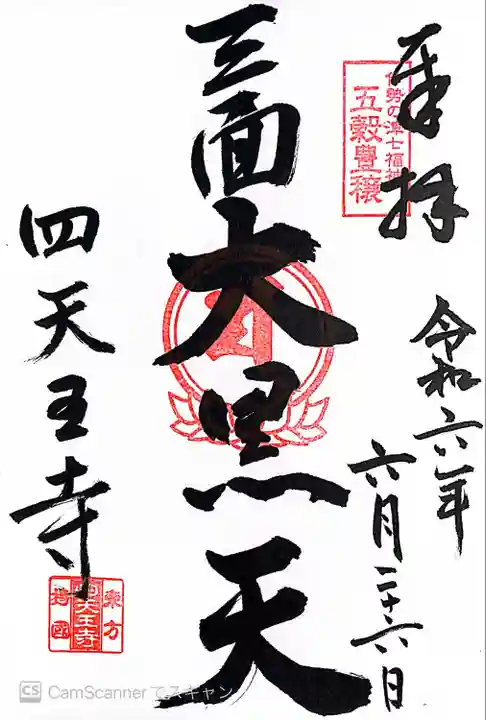 奉拝
伊勢の津七福神
五穀豊穣
令和六年
六月二十六日
三面大黒天
四天王寺
東方
四天王寺
持国
CS CamScannerでスキャン